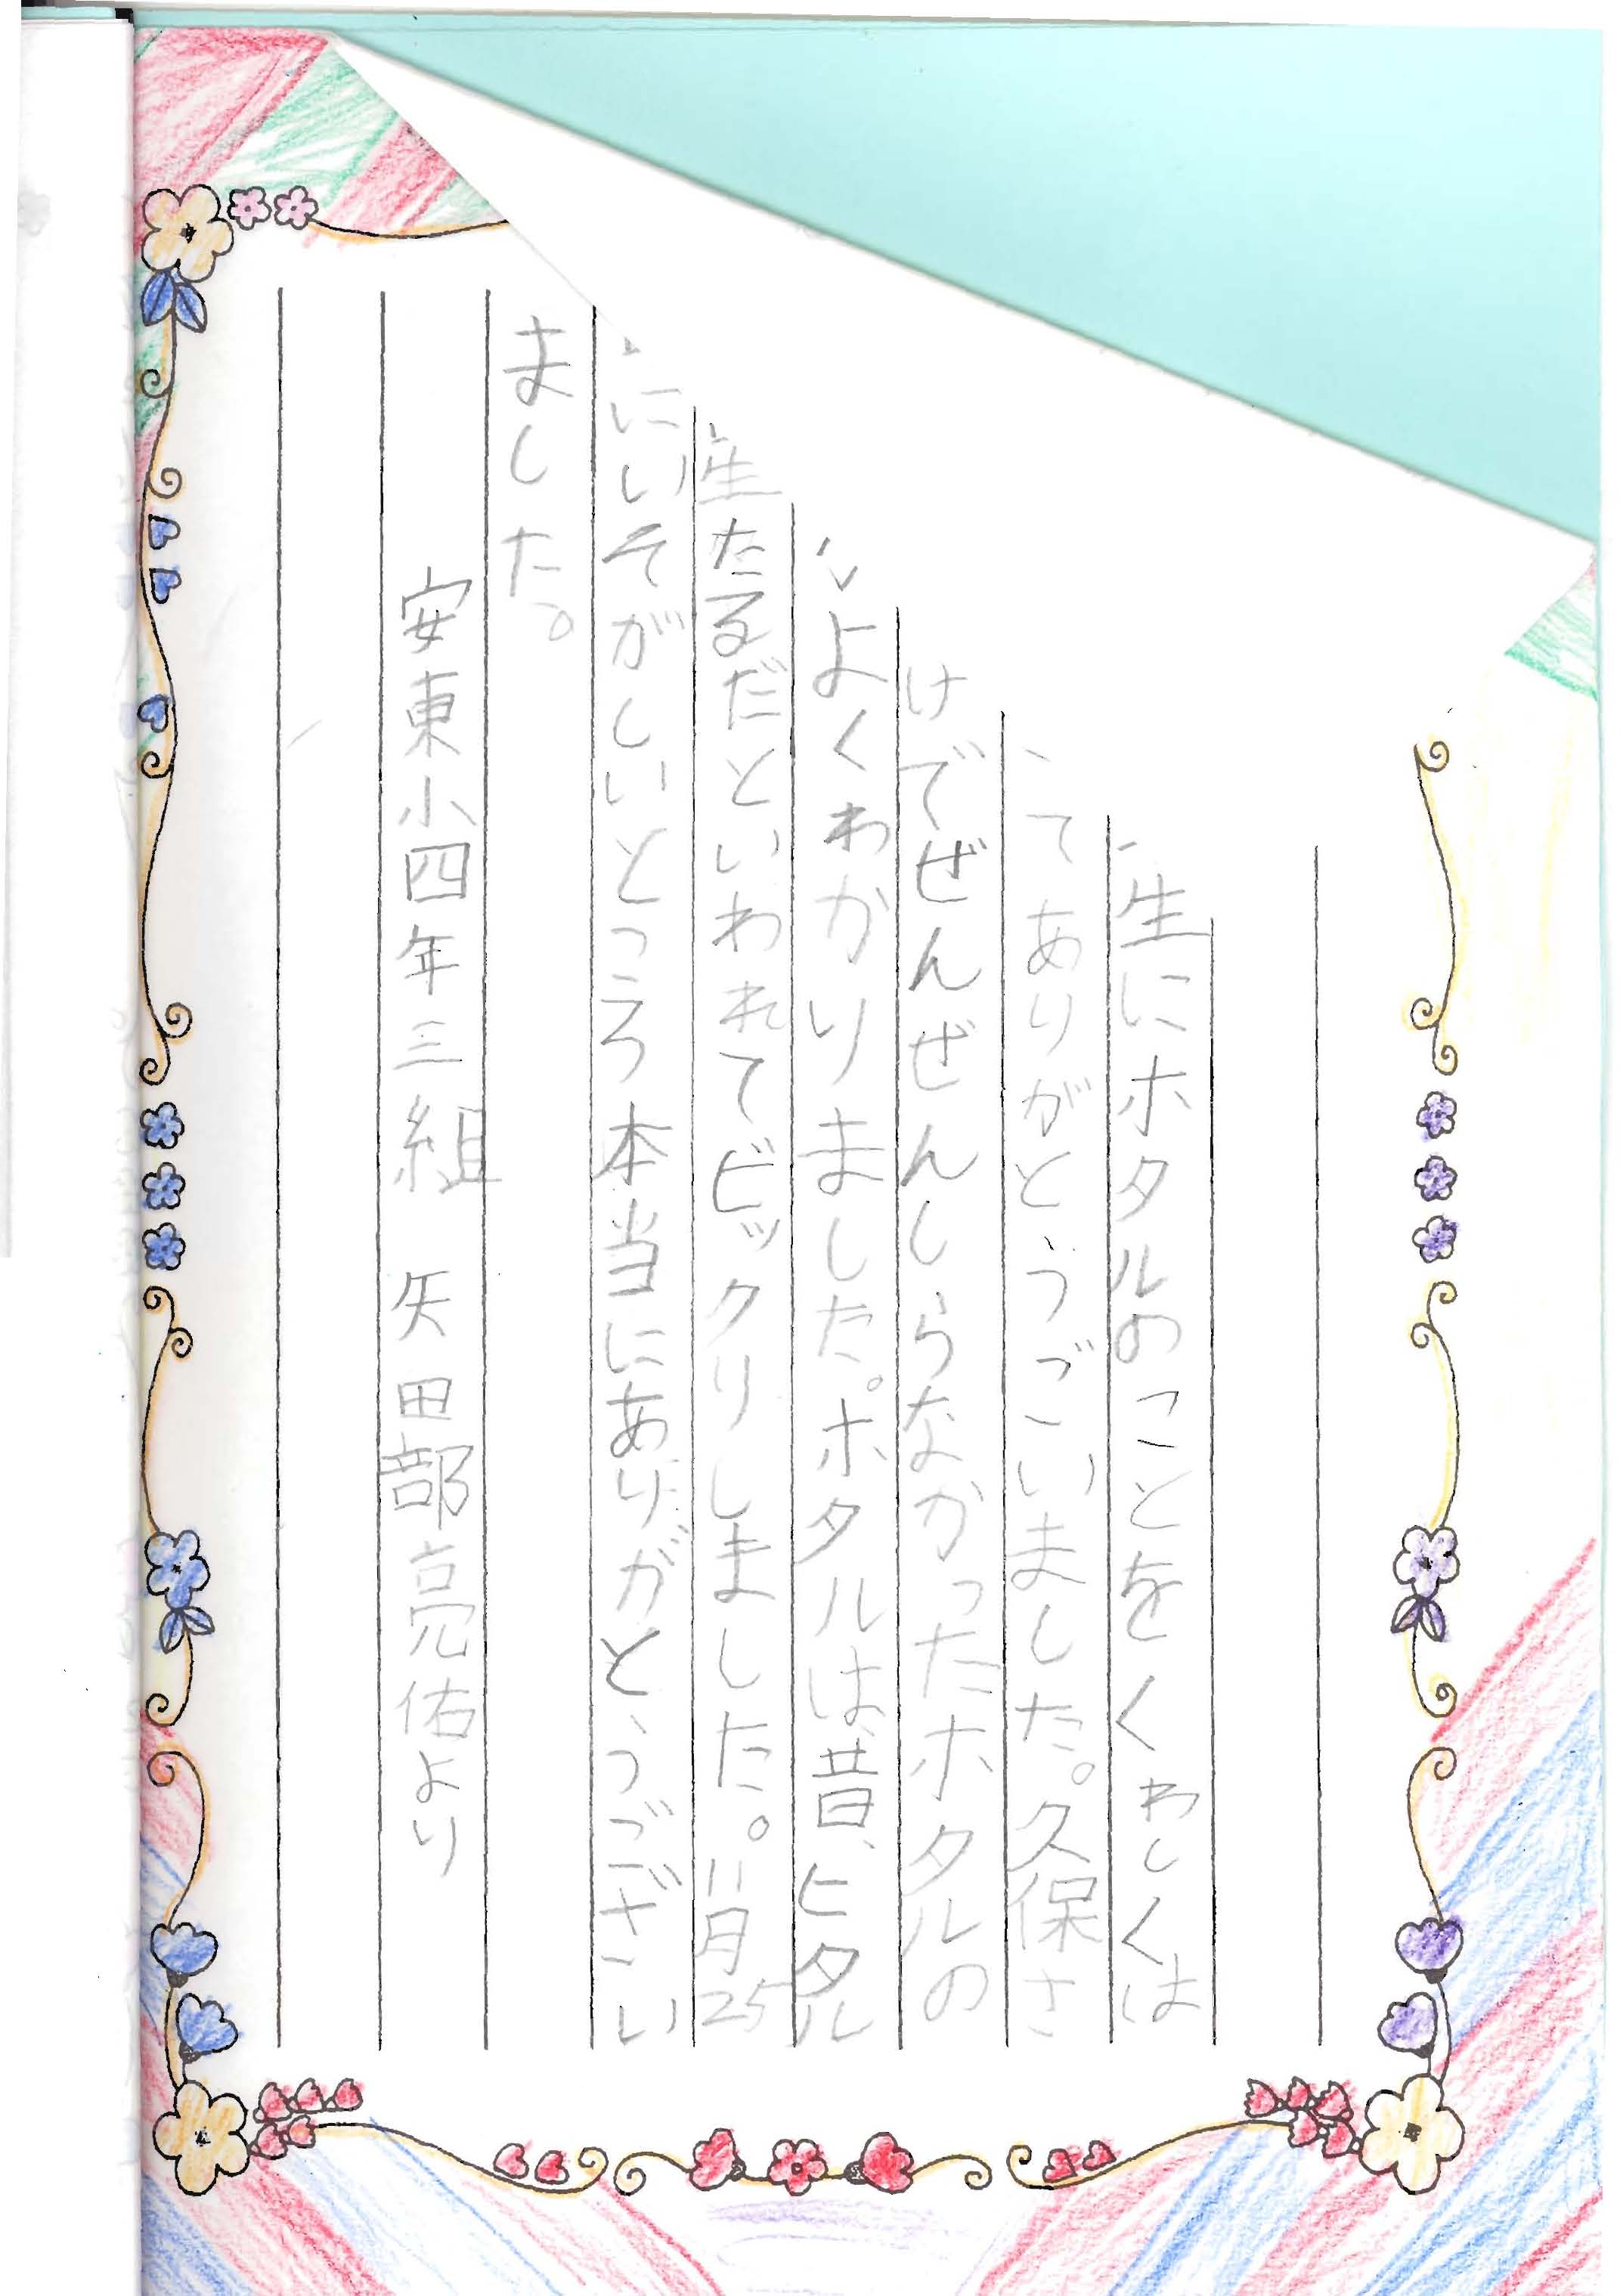 生にホタルのことをくわしくは
てありがとうございました。久保さ
けでぜんぜんしらなかったホタルの
よくわかりました。ホタルは昔、ヒタル
生たるだといわれてビックリしました。11月25
にいそがしいところ本当にありがとうござい
ました。
安東小四年三組 矢田部亮佑より